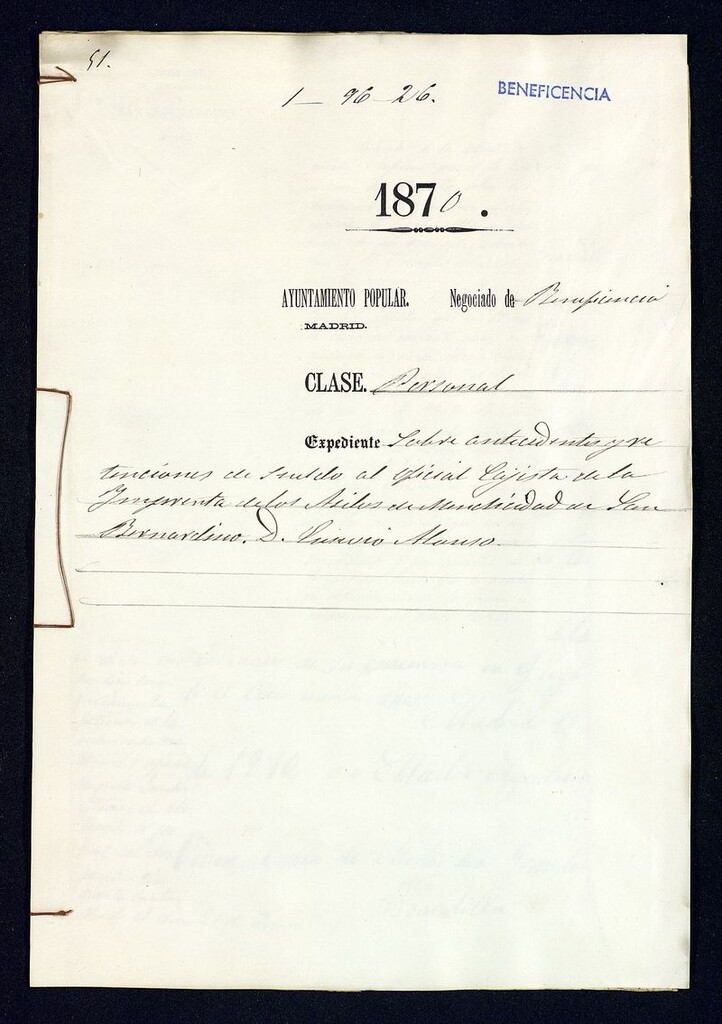 51.
1 – 96 – 26.
BENEFICENCIA
1870.
AYUNTAMIENTO POPULAR. Negociado de Beneficencia
MADRID.
CLASE. Personal
Expediente Sobre antecedentes y re
tenciones de sueldo al oficial Cajista de la
Imprenta de los Asilos de Mendicidad de San
Bernardino, D. Alonso.